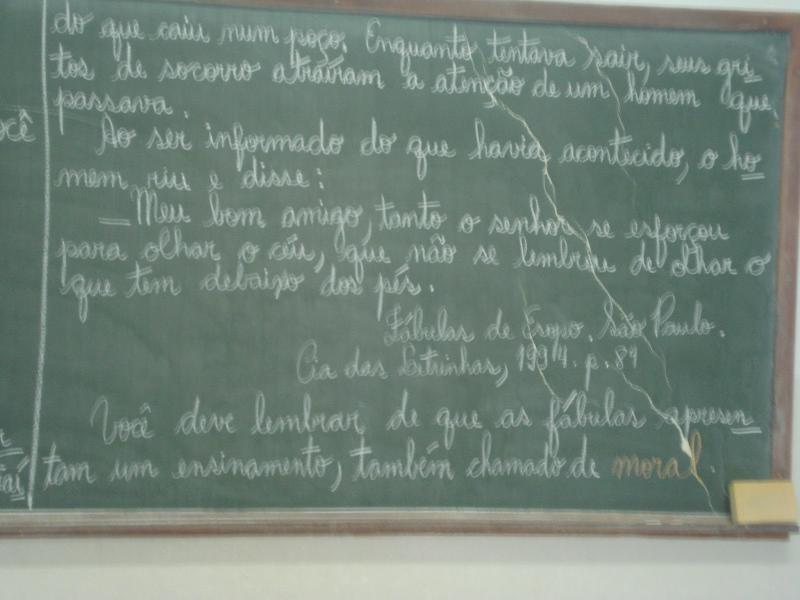 do que caiu num poço. Enquanto tentava sair, seus gri
tos de socorro atraíram a atenção de um homem que
passava.
ocê
Ao ser informado do que havia acontecido, o ho
mem riu e disse:
— Meu bom amigo, tanto o senhor se esforçou
para olhar o céu, que não se lembrou de olhar o
que tem debaixo dos pés.
Fábulas de Esopo. São Paulo.
Cia das Letrinhas, 1994. p. 81
Você deve lembrar de que as fábulas apresen
tam um ensinamento, também chamado de moral.